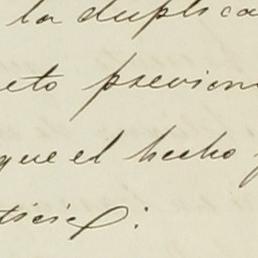 la duplica
eto previen
que el hecho
ticia: